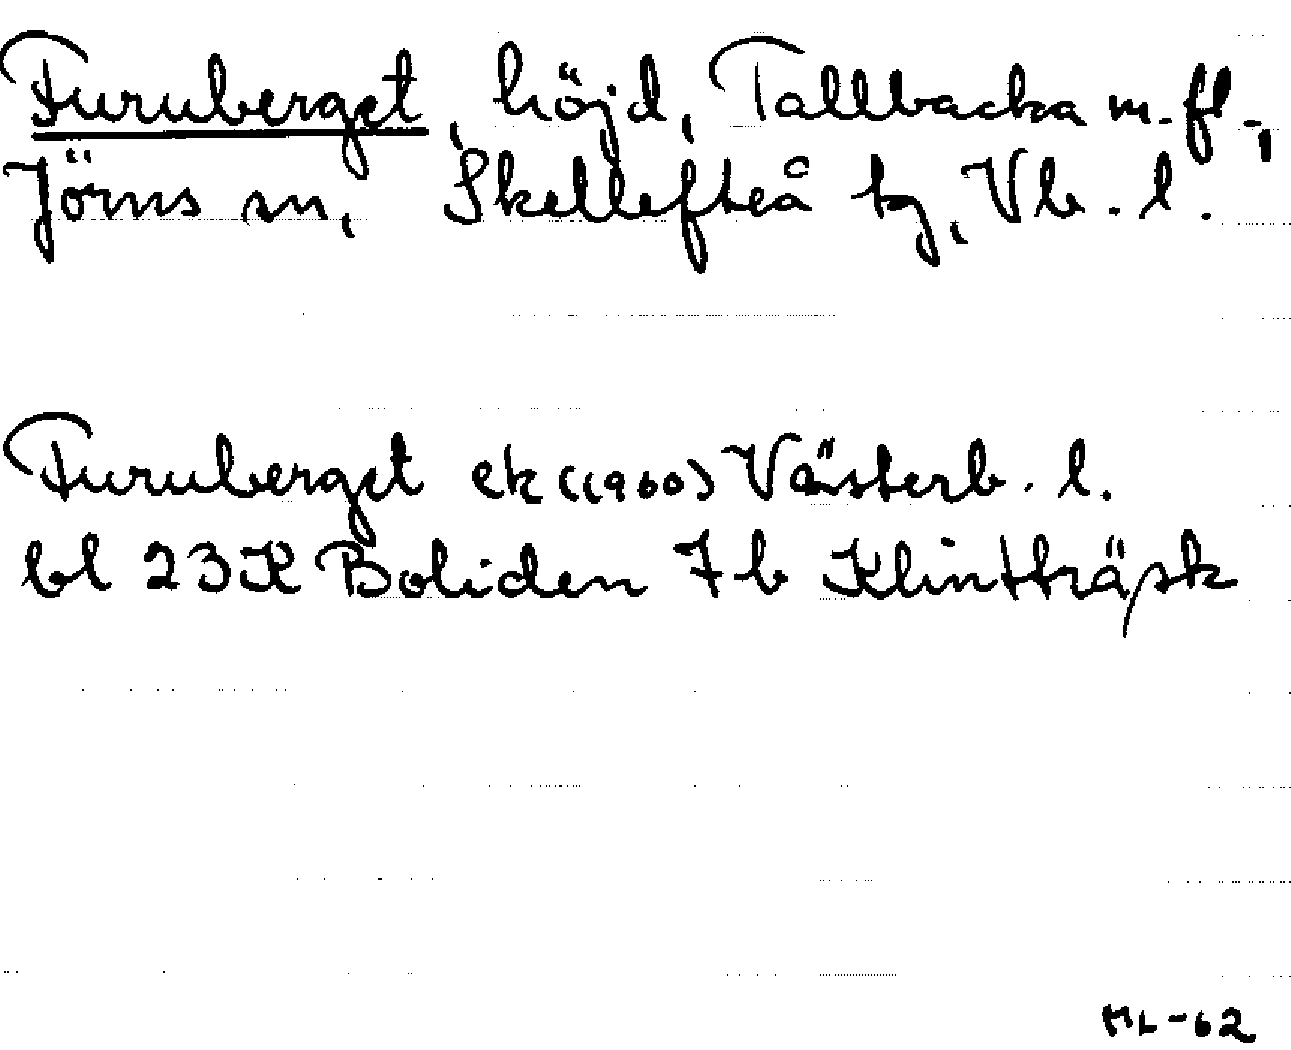 Furuberget, höjd, Tallbacka m. fl.,
Jörns sn, Skellefteå tg, Vb. l.
Furuberget ek (1960) Västerb. l.
bl 23K Boliden 7 b Klintträsk
ML-62